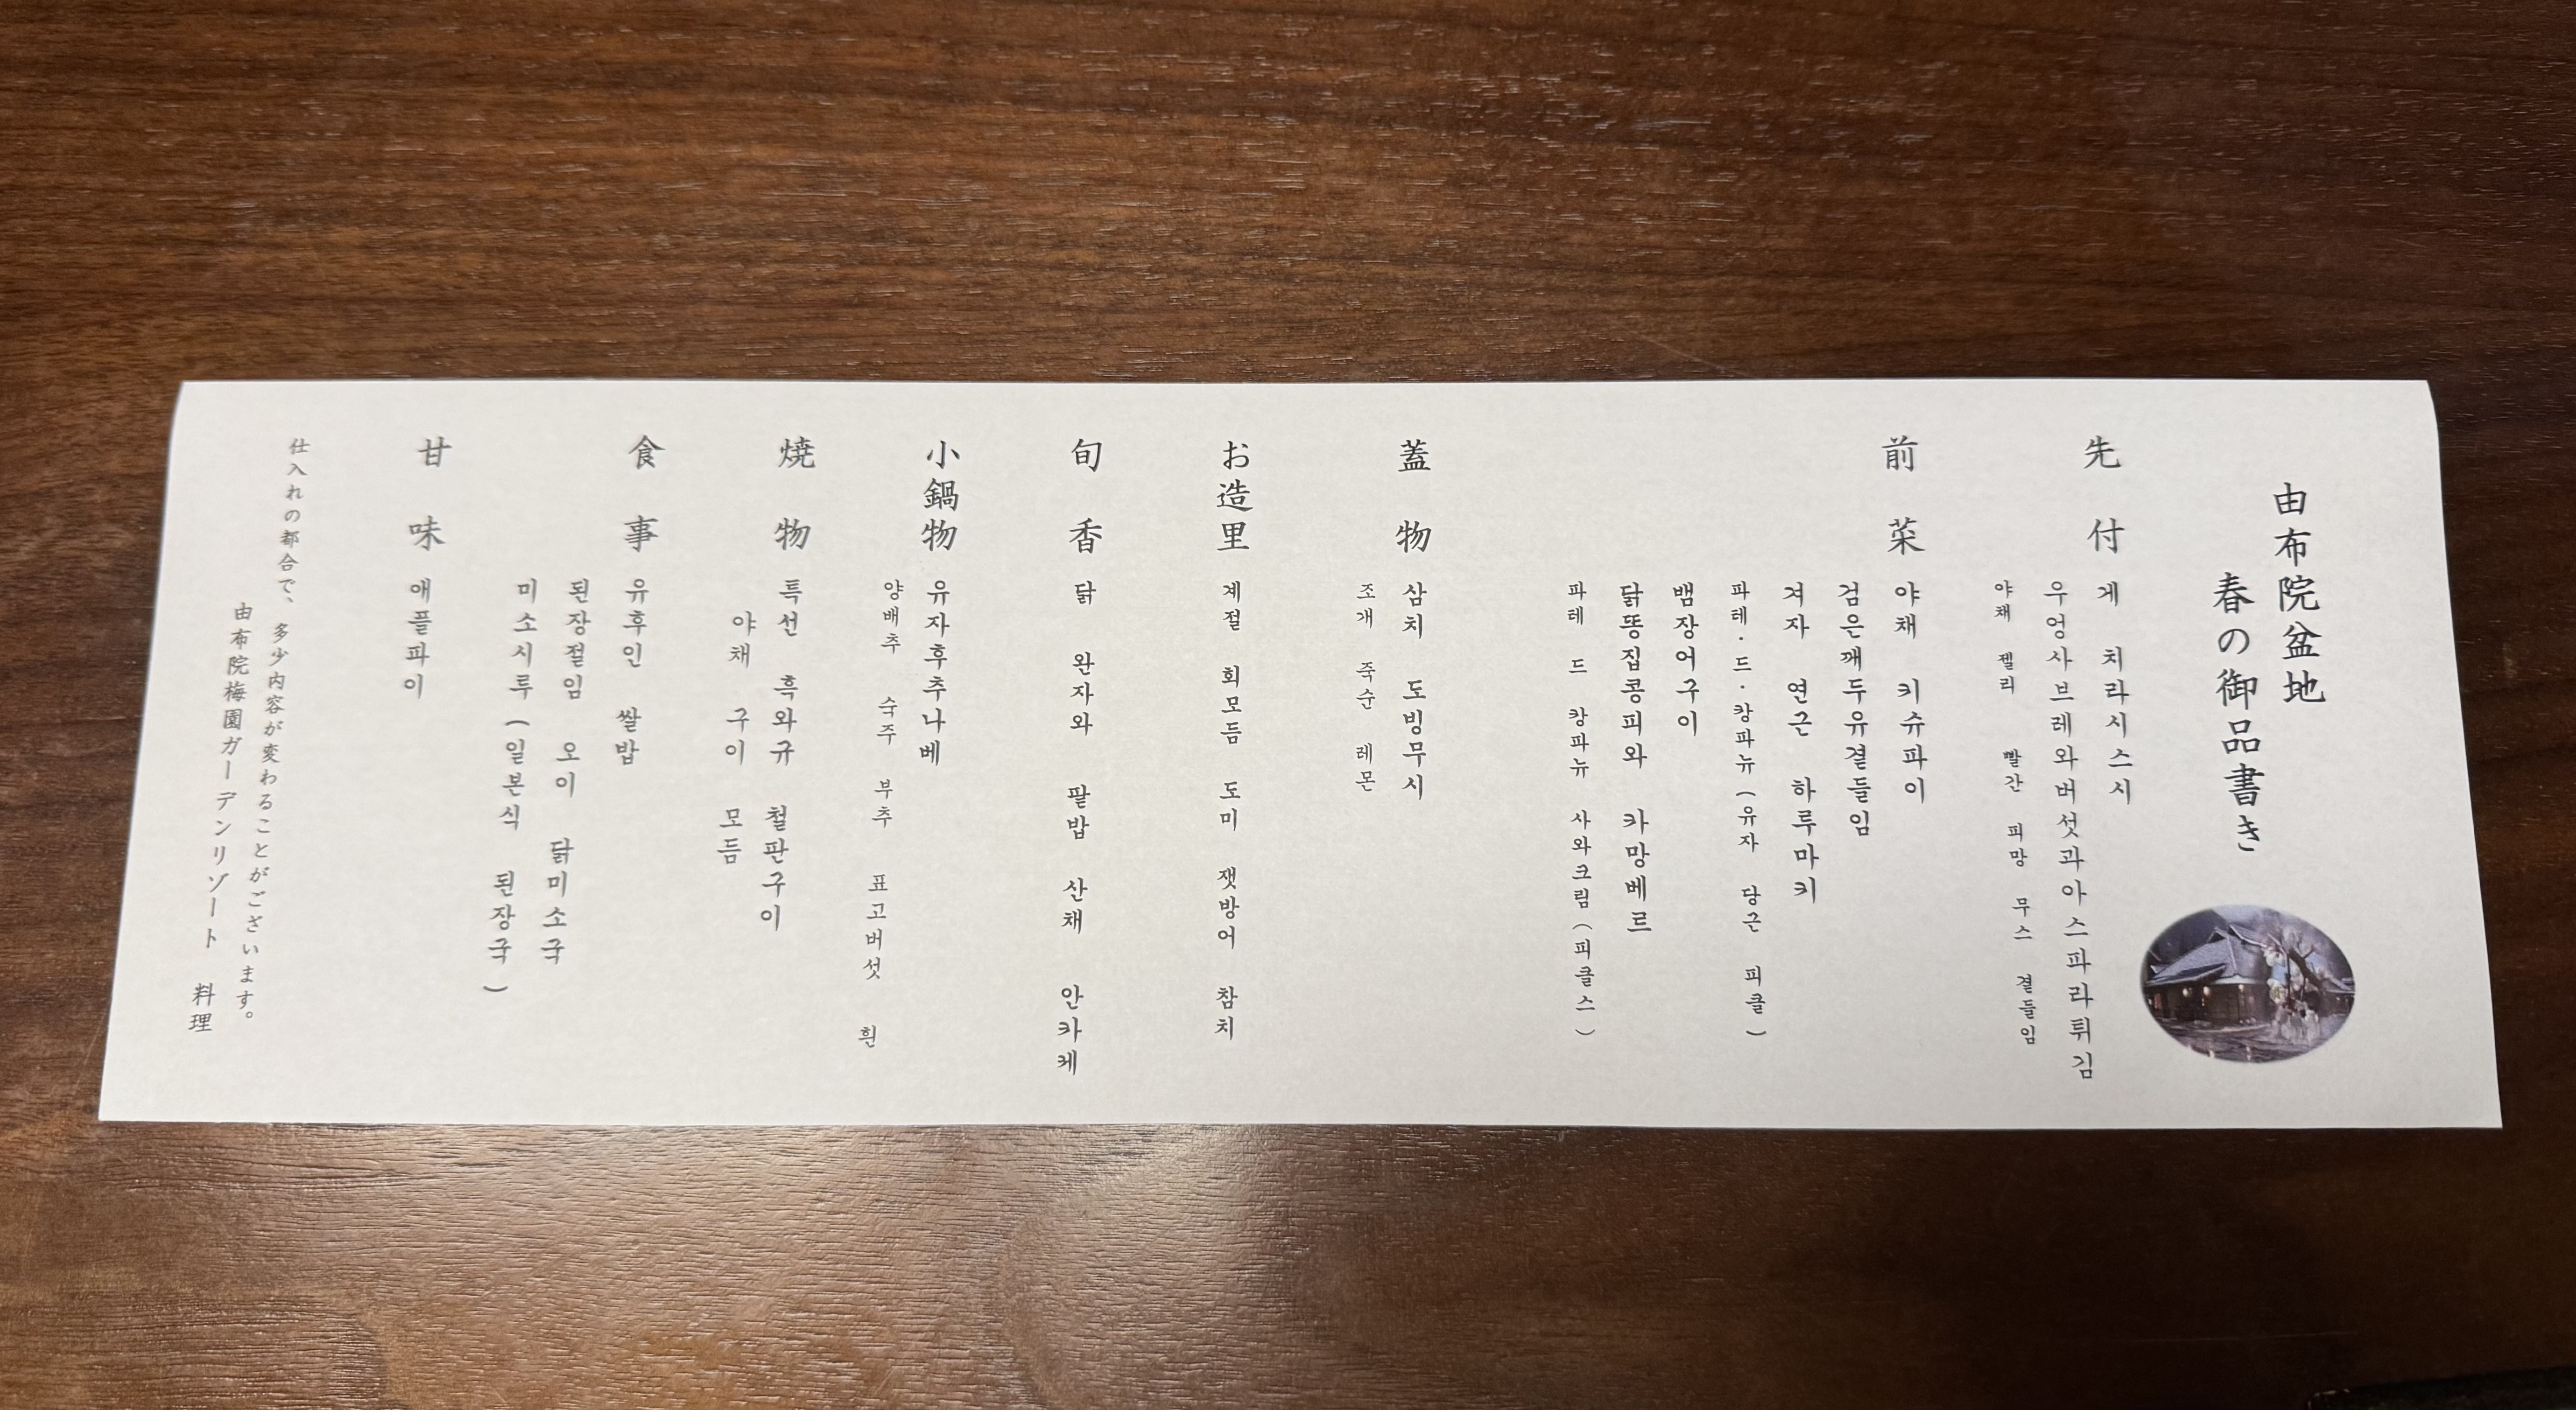 由布院盆地
春の御品書き
先付
게 치라시스시
우엉사브레와버섯과아스파라튀김
야채 젤리 빨간 피망 무스 곁들임
前菜
야채 키슈파이
검은깨두유곁들임
겨자 연근 하루마키
파테・드・캉파뉴(유자 당근 피클)
뱀장어구이
닭똥집콩피와 카망베르
파테 드 캉파뉴 사와크림(피클스)
蓋物
삼치 도빙무시
조개 죽순 레몬
お造里
계절 회모듬 도미 잿방어 참치
旬香
닭 완자와 팥밥 산채 안카케
小鍋物
유자후추나베
양배추 숙주 부추 표고버섯 흰
焼物
특선 흑와규 철판구이
야채 구이 모듬
食事
유후인 쌀밥
된장절임 오이 닭미소국
미소시루(일본식 된장국)
甘味
애플파이
仕入れの都合で、多少内容が変わることがございます。
由布院梅園ガーデンリゾート 料理